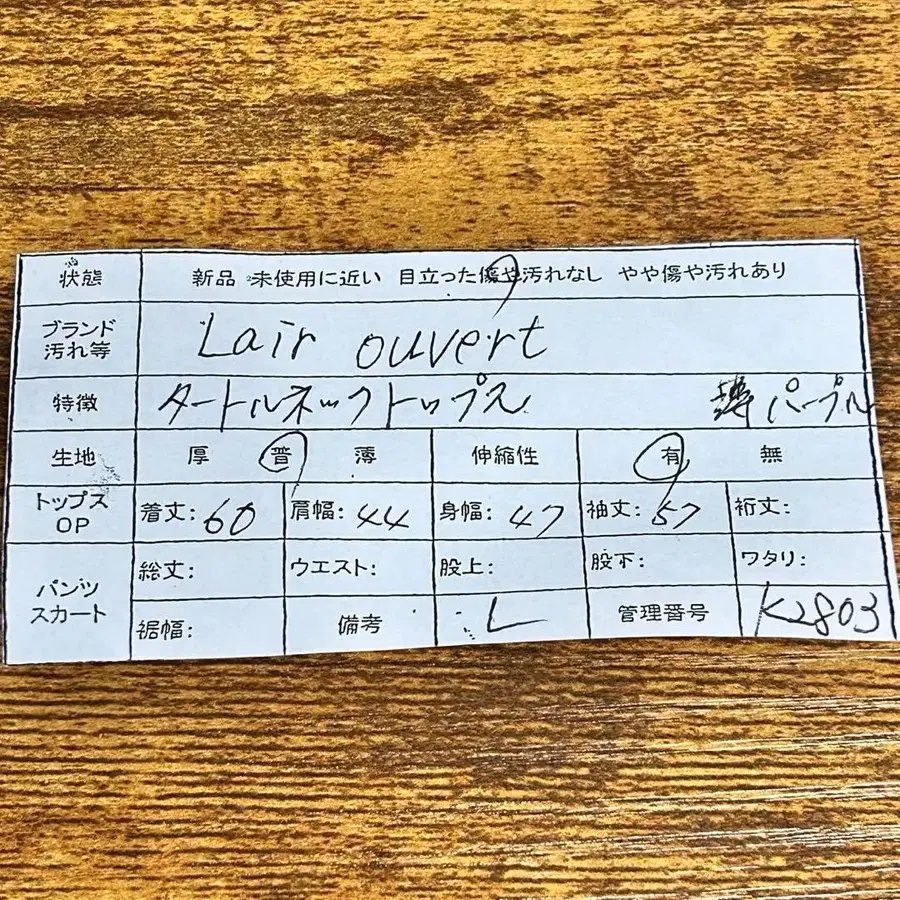 状態 新品 未使用に近い 目立った傷や汚れなし やや傷や汚れあり
ブランド
汚れ等
Lair ouvert
特徴 タートルネックトップス 薄パープル
生地 厚 普 薄 伸縮性 有 無
トップス
OP
着丈:60 肩幅:44 身幅:47 袖丈:57 裄丈:
パンツ
スカート
総丈: ウエスト: 股上: 股下: ワタリ:
裾幅: 備考 L 管理番号 K2803